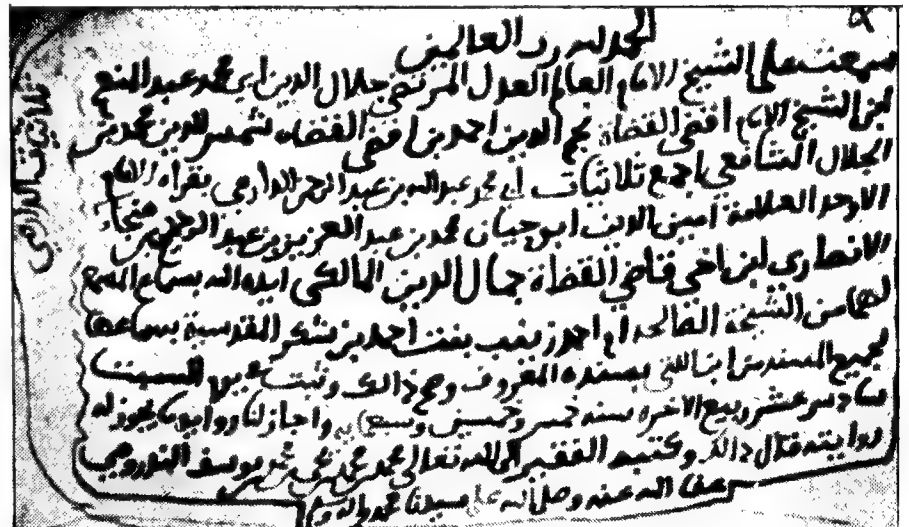 الحمد لله رب العالمين
سمعت على الشيخ الامام العالم العدل المرتضى جلال الدين ابي محمد عبد المنعم
ابن الشيخ الامام اقضى القضاة نجم الدين احمد بن اقضى القضاة شمس الدين محمد بن
الجلال الشافعي اجمع ثلاثيات ابي محمد عبد الله بن عبد الرحمن الدارمي بقراءة الامام
الاوحد العلامة امين الدين ابو حيان محمد بن عبد العزيز بن عبد الرحمن بن
الانصاري ابن اخي قاضي القضاة جمال الدين المالكي ايده الله بسماع المسمع
لها من الشيخة الصالحة ام احمد زينب بنت احمد بن شكر المقدسية بسماعها
لجميع المسند من ابن اللتي بسنده المعروف وصح ذالك وثبت عشية السبت
سادس عشر ربيع الاخر سنة خمس وخمسين وسبعمايه واجاز لنا رواية ما يجوز له
روايته قال ذالك وكتبه الفقير الى الله تعالى محمد بن محمد بن يحيى بن محمد بن يوسف الندرومي
عفا الله عنه وصلى الله على سيدنا محمد واله وسلم
ثلاثيات الدارمي